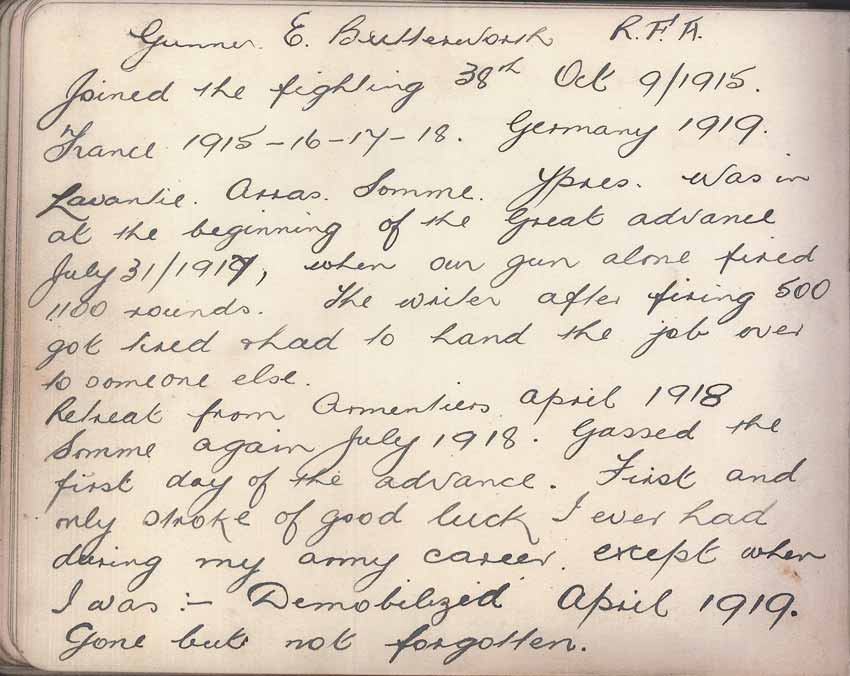 Gunner. E. Butterworth R.F.A.
Joined the fighting 38th Oct 9/1915.
France 1915-16-17-18. Germany 1919.
Lavantie. Arras. Somme. Ypres. Was in
at the beginning of the Great advance
July 31/1917, when our gun alone fired
1100 rounds. The writer after firing 500
got tired & had to hand the job over
to someone else.
Retreat from Armentiers april 1918
Somme again July 1918. Gassed the
first day of the advance. First and
only stroke of good luck I ever had
during my army career. except when
I was :- Demobilized April 1919.
Gone but not forgotten.